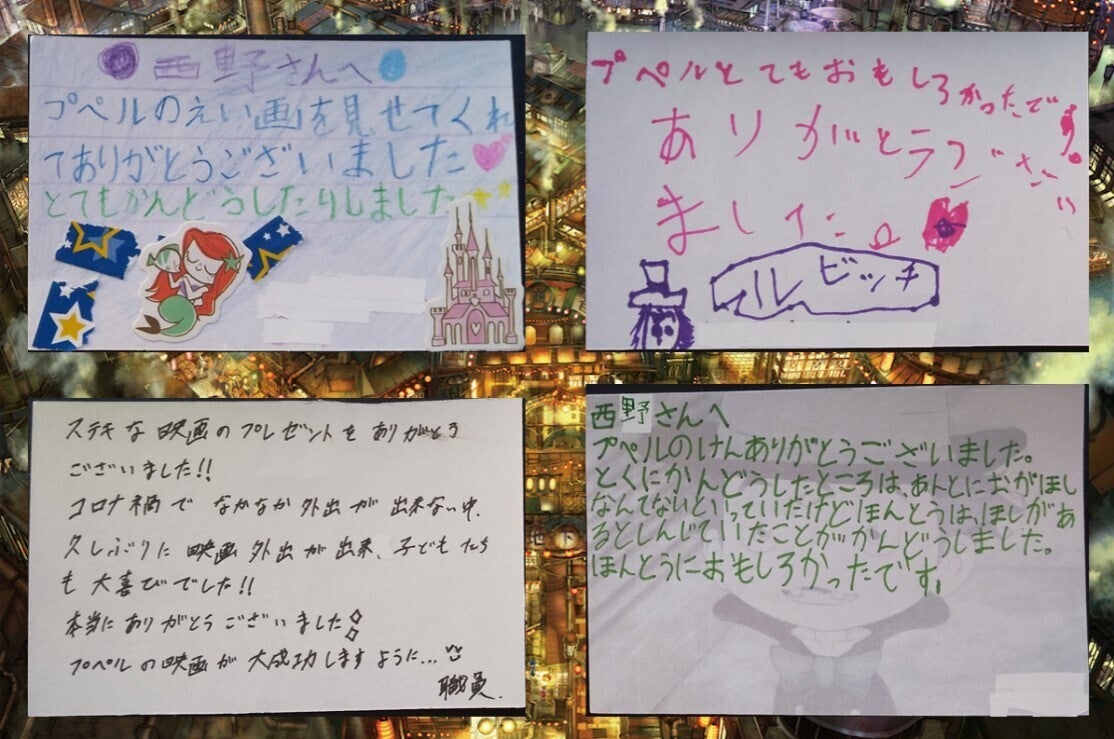 西野さんへ
プペルのえい画を見せてくれ
てありがとうございました
とてもかんどうしたりしました
プペルとてもおもしろかったです。
ありがとうござい
ました。
ルビッチ
ステキな映画のプレゼントをありがとう
ございました!!
コロナ禍でなかなか外出が出来ない中、
久しぶりに映画外出が出来、子どもたち
も大喜びでした!!
本当にありがとうございました
プペルの映画が大成功しますように…
職員.
西野さんへ
プペルのけんありがとうございました。
とくにかんどうしたところは、あんとにおがほし
なんてないといっていたけどほんとうは、ほしがあ
るとしんじていたことがかんどうしました。
ほんとうにおもしろかったです。